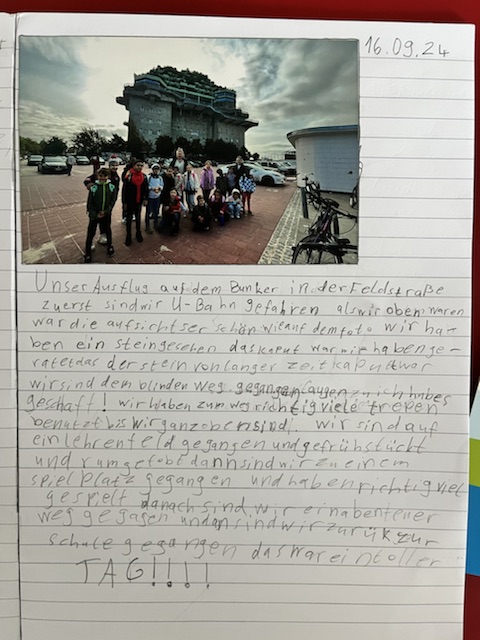 16.09.24
Unser Ausflug auf dem Bunker in der Feldstraße
zuerst sind wir U-Bahn gefahren als wir oben waren
war die aufsicht ser schön wie auf dem foto wir ha-
ben ein stein gesehen das kaput war wie haben ge-
ratet das der stern von langer zeit kaputt war
wir sind dem blinden weg gegangen augen zu ich habe s
geschaft! wir haben zum weg richtig viele trepen
benutzt bis wir ganz oben sind. wir sind auf
ein lehren feld gegangen und gefrühstückt
und rum getobt dann sind wir zu einem
spiel Platz gegangen und haben richtig viel
gespielt danach sind wir ein abenteuer
weg gegagen und an sind wir zurück zur
schule gegangen das war ein toller
TAG!!!!